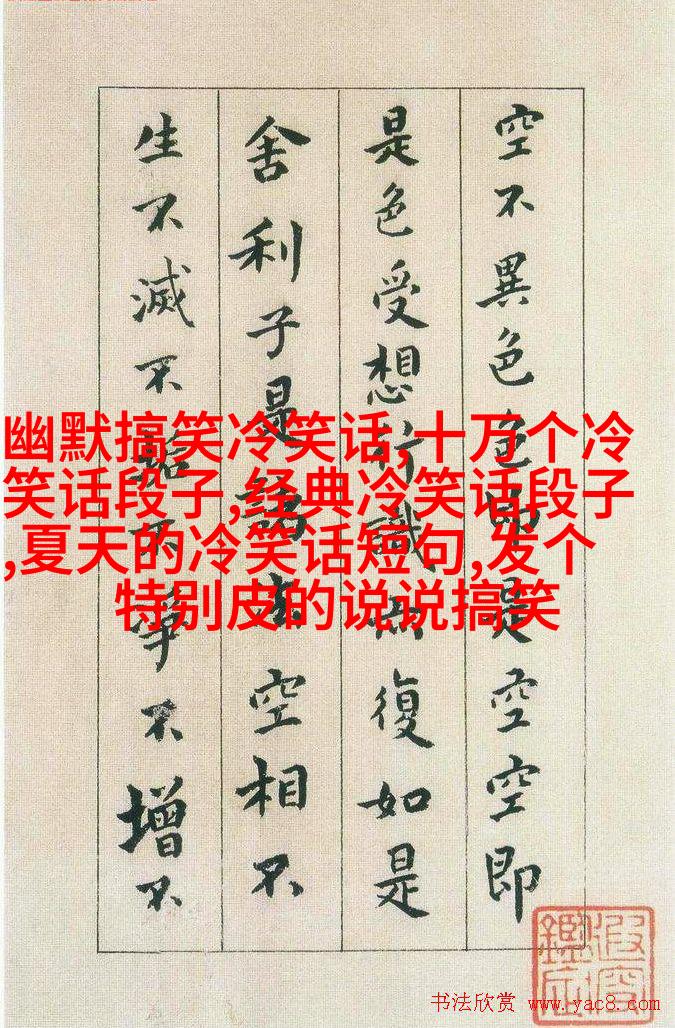 空不異色色即是空空即
是色受想行識亦復如是
舍利子是諸法空相不
生不滅不垢不淨不增不
幽默搞笑冷笑话,十万个冷
笑话段子,经典冷笑话段子
,夏天的冷笑话短句,发个
特别皮的说说搞笑
书法欣赏 www.yac8.com